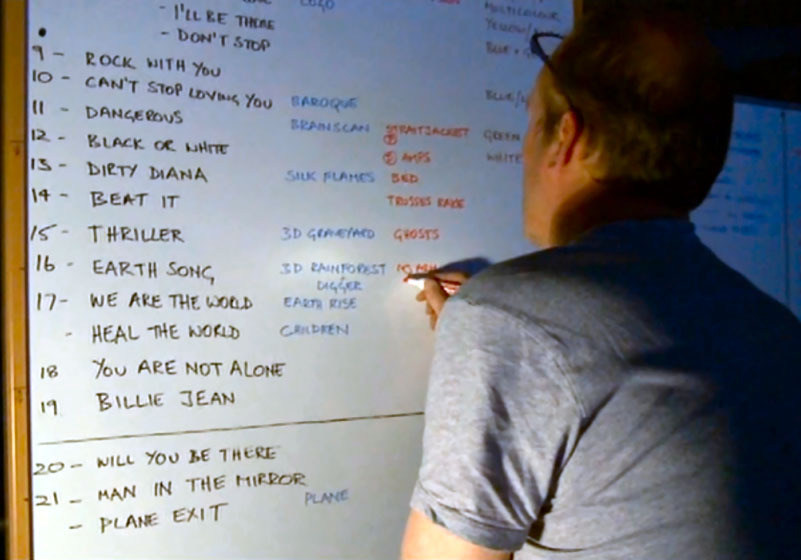 LOGO
- I'LL BE THERE MULTICOLOUR
- DON'T STOP YELLOW/
9 - ROCK WITH YOU BLUE +
10 - CAN'T STOP LOVING YOU BAROQUE BLUE/
11 - DANGEROUS BRAINSCAN STRAITJACKET GREEN
12 - BLACK OR WHITE AMPS WHITE
13 - DIRTY DIANA SILK FLAMES BED
14 - BEAT IT TRUSSES RAKE
15 - THRILLER 3D GRAVEYARD GHOSTS
16 - EARTH SONG 3D RAINFOREST
DIGGER
17 - WE ARE THE WORLD EARTH RISE
- HEAL THE WORLD CHILDREN
18 YOU ARE NOT ALONE
19 BILLIE JEAN
20 - WILL YOU BE THERE
21 - MAN IN THE MIRROR PLANE
- PLANE EXIT